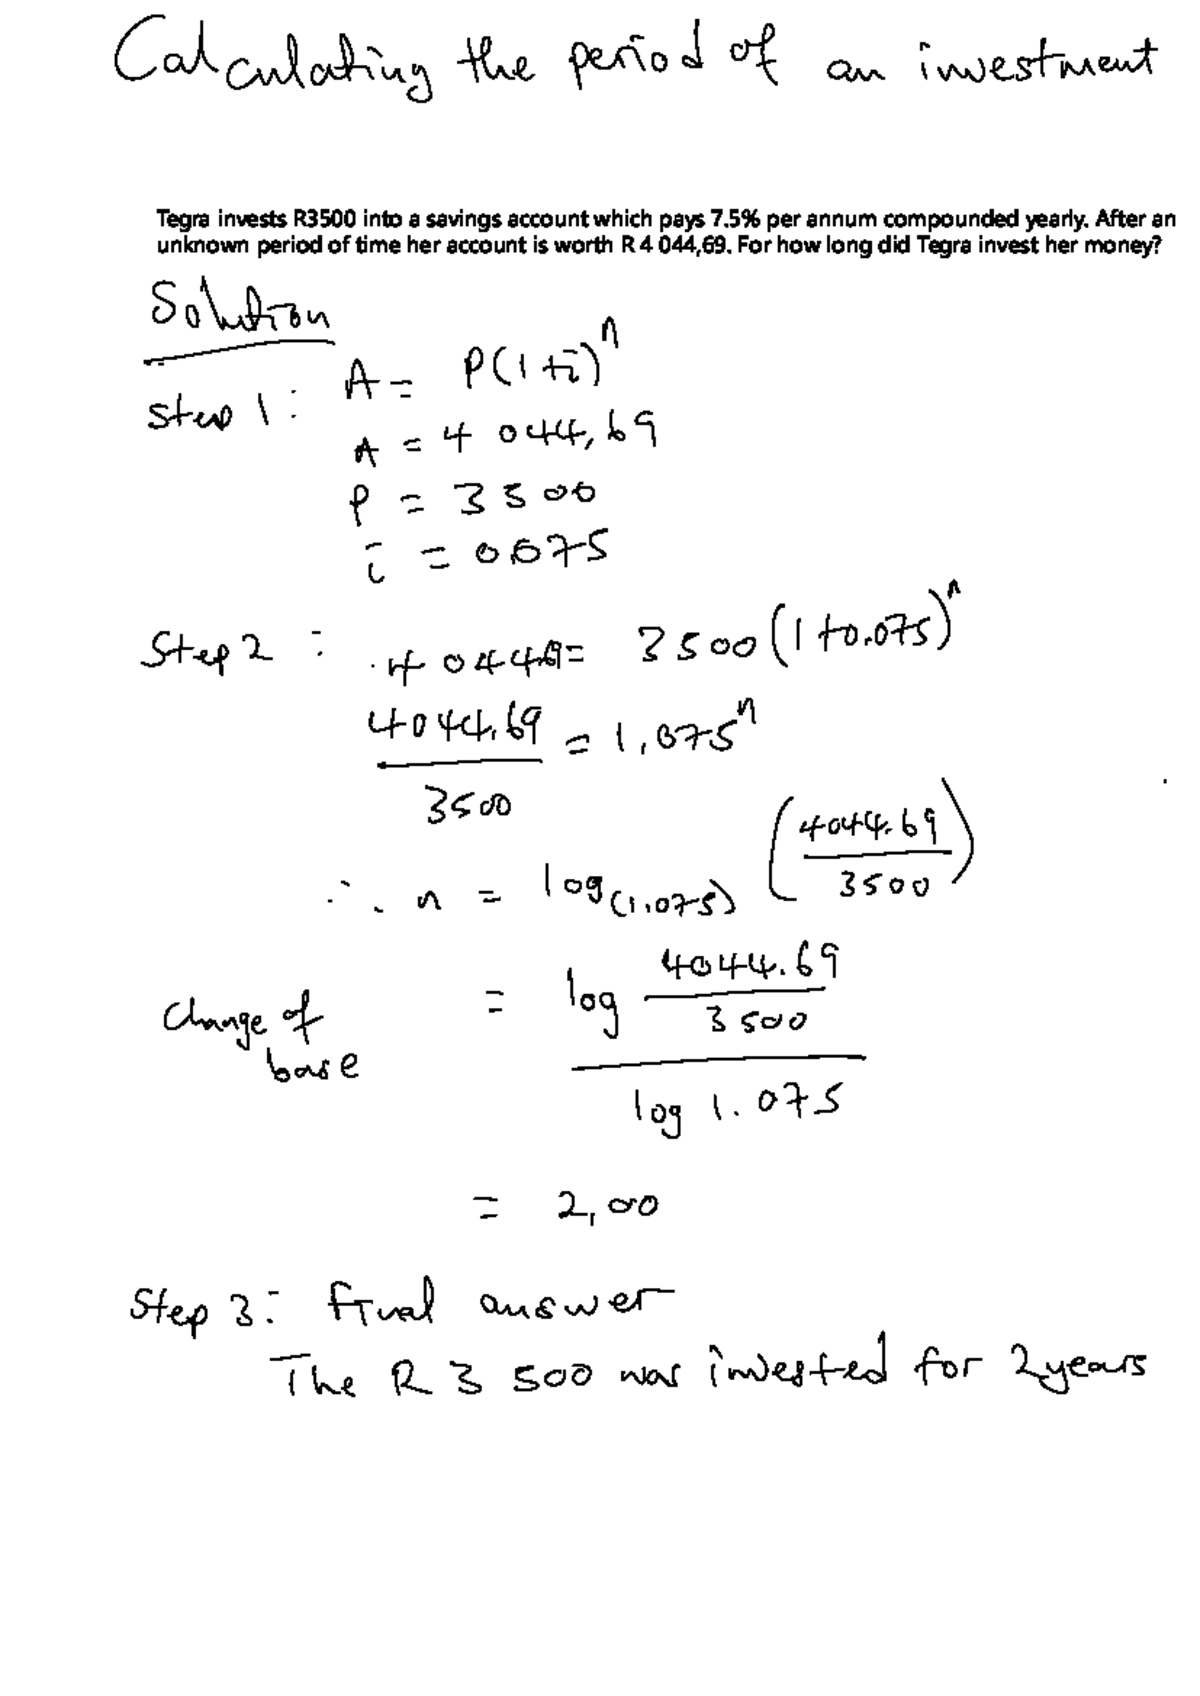 Calculating the period of an investment
Tegra invests R3500 into a savings account which pays 7.5% per annum compounded yearly. After an
unknown period of time her account is worth R 4 044,69. For how long did Tegra invest her money?
Solution
Step 1: A = P(1+i)^n
A = 4 044,69
P = 3500
i = 0.075
Step 2: 4044.69 = 3500(1+0.075)^n
4044.69/3500 = 1.075^n
∴ n = log(1.075) (4044.69/3500)
Change of base = log 4044.69/3500 / log 1.075
= 2,00
Step 3: final answer
The R 3 500 was invested for 2 years